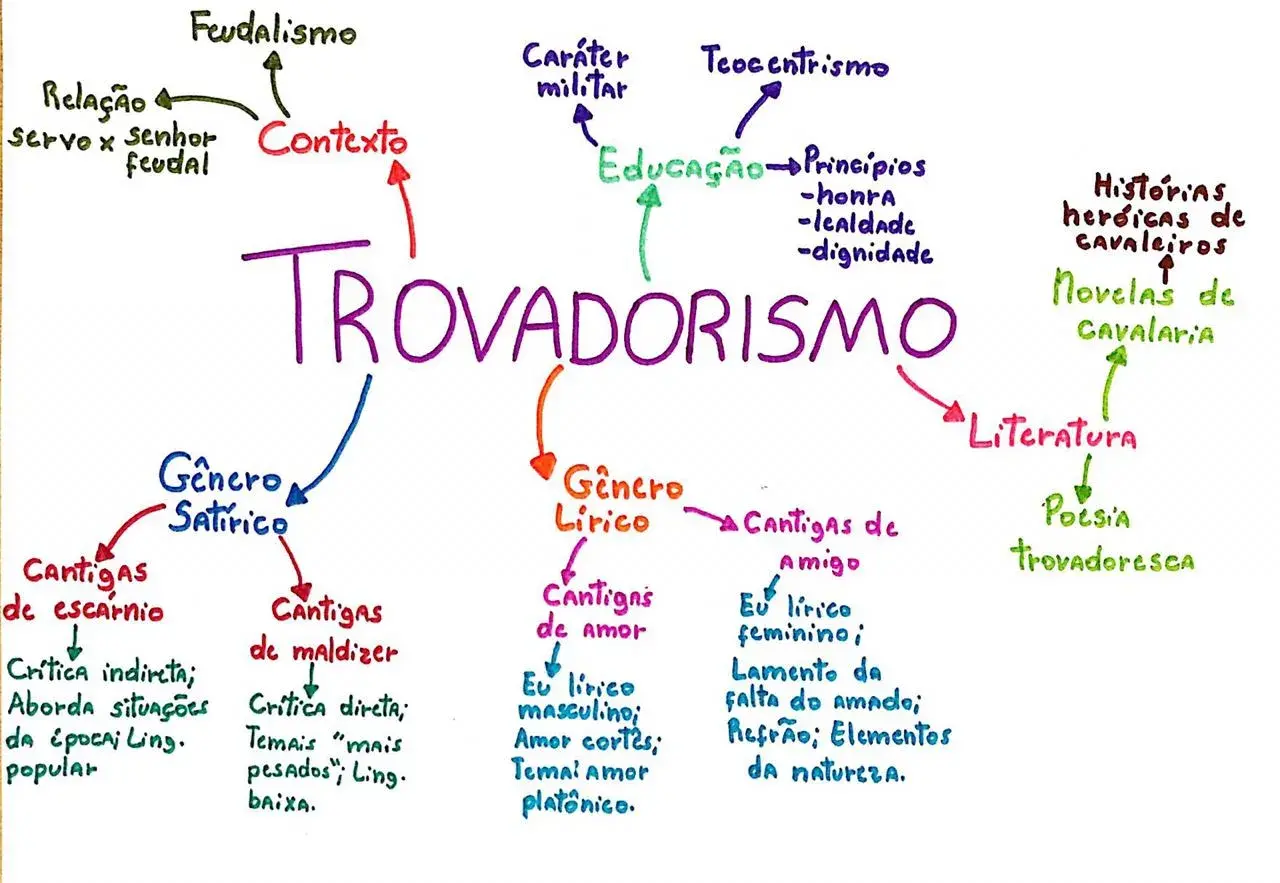 Feudalismo
Relação
servo x senhor
feudal
Contexto
Caráter
militar
Teocentrismo
Educação
Princípios
-honra
-lealdade
-dignidade
Histórias
heróicas de
cavaleiros
Novelas de
cavalaria
TROVADORISMO
Literatura
Poesia
trovadoresca
Gênero
Satírico
Cantigas
de escárnio
Crítica indireta;
Aborda situações
da época; Ling.
popular
Cantigas
de maldizer
Crítica direta;
Temais "mais
pesados"; Ling.
baixa.
Gênero
Lírico
Cantigas
de amor
Eu lírico
masculino;
Amor cortês;
Tema: amor
platônico.
Cantigas de
amigo
Eu lírico
feminino;
Lamento da
falta do amado;
Refrão; Elementos
da natureza.